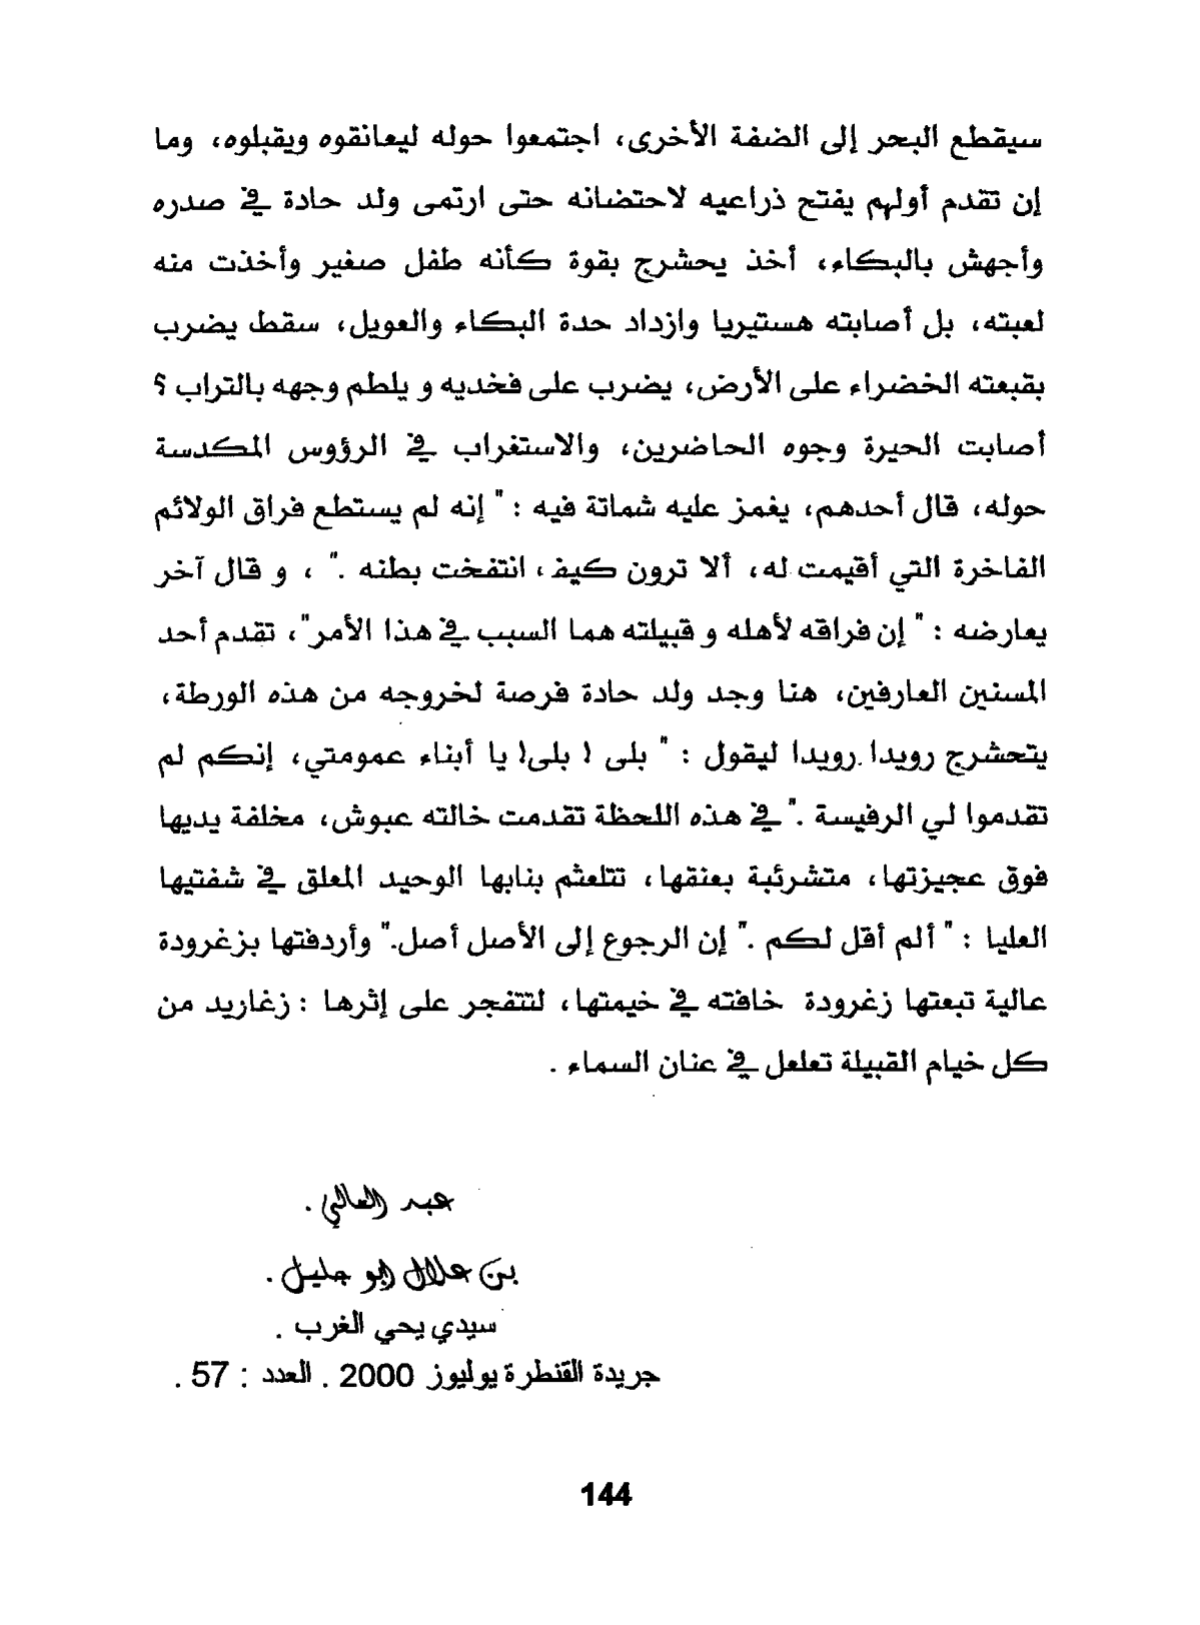 سيقطع البحر إلى الضفة الأخرى، اجتمعوا حوله ليعانقوه ويقبلوه، وما
إن تقدم أولهم يفتح ذراعيه لاحتضانه حتى ارتمى ولد حادة في صدره
وأجهش بالبكاء، أخذ يحشرج بقوة كأنه طفل صغير وأخذت منه
لعبته، بل أصابته هستيريا وازداد حدة البكاء والعويل، سقط يضرب
بقبعته الخضراء على الأرض، يضرب على فخديه و يلطم وجهه بالتراب ؟
أصابت الحيرة وجوه الحاضرين، والاستغراب في الرؤوس المكدسة
حوله، قال أحدهم، يغمز عليه شماتة فيه : " إنه لم يستطع فراق الولائم
الفاخرة التي أقيمت له، ألا ترون كيف، انتفخت بطنه ."، و قال آخر
يعارضه : " إن فراقه لأهله و قبيلته هما السبب في هذا الأمر"، تقدم أحد
المسنين العارفين، هنا وجد ولد حادة فرصة لخروجه من هذه الورطة،
يتحشرج رويدا رويدا ليقول : " بلى ! بلى! يا أبناء عمومتي، إنكم لم
تقدموا لي الرفيسة ." في هذه اللحظة تقدمت خالته عبوش، مخلفة يديها
فوق عجيزتها، متشرئبة بعنقها، تتلعثم بنابها الوحيد المعلق في شفتيها
العليا : " ألم أقل لكم ." إن الرجوع إلى الأصل أصل." وأردفتها بزغرودة
عالية تبعتها زغرودة خافته في خيمتها، لتتفجر على إثرها : زغاريد من
كل خيام القبيلة تعلعل في عنان السماء .
عبد العالي .
بن علال ابو جليل .
سيدي يحي الغرب .
جريدة القنطرة يوليوز 2000 . العدد : 57 .
144